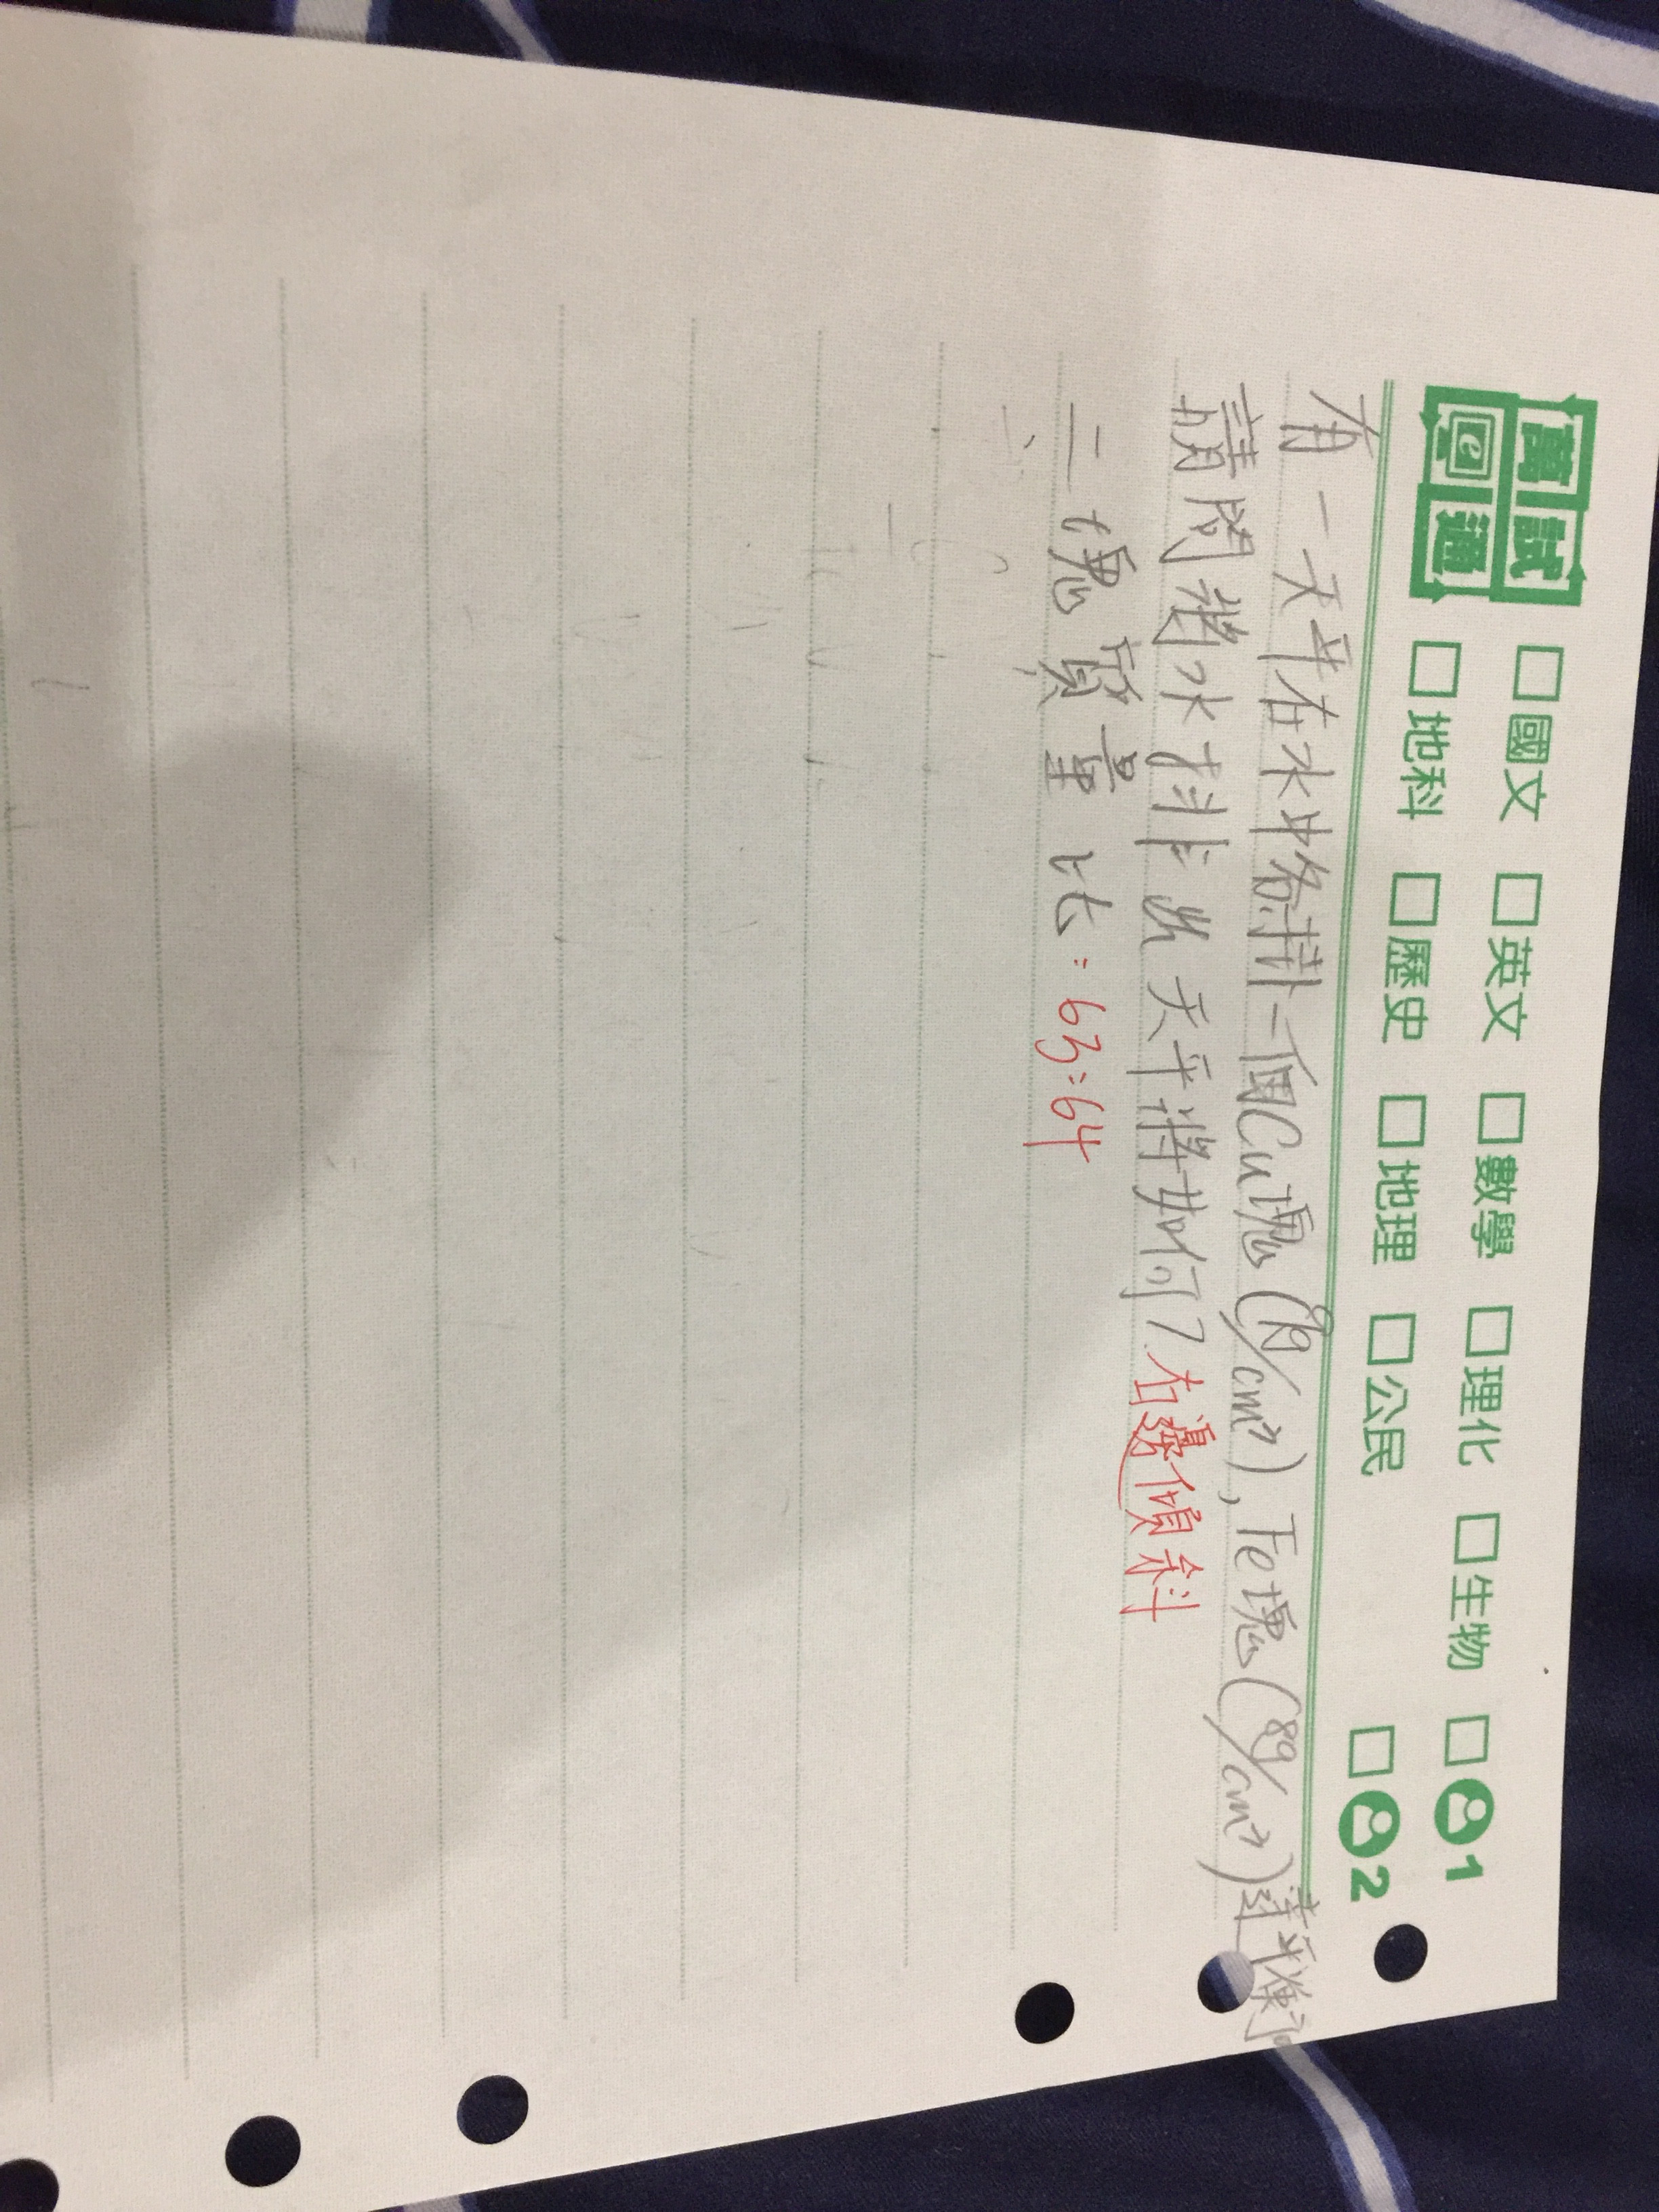 萬試e通
□國文 □英文 □數學 □理化 □生物 □1
□地科 □歷史 □地理 □公民 □2
有一天平在水中各掛一個Cu塊(9g/cm³),Fe塊(8g/cm³)達平衡
請問拦水排出天平將如何?右邊傾斜
二塊質量比:63:64